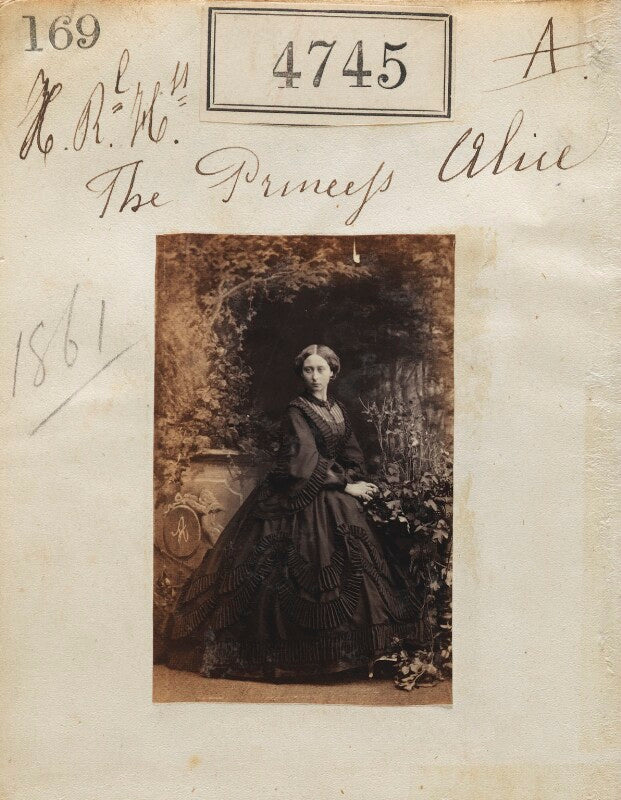 169
4745
A.
H. R.l H.ss
The Princess Alice
1861